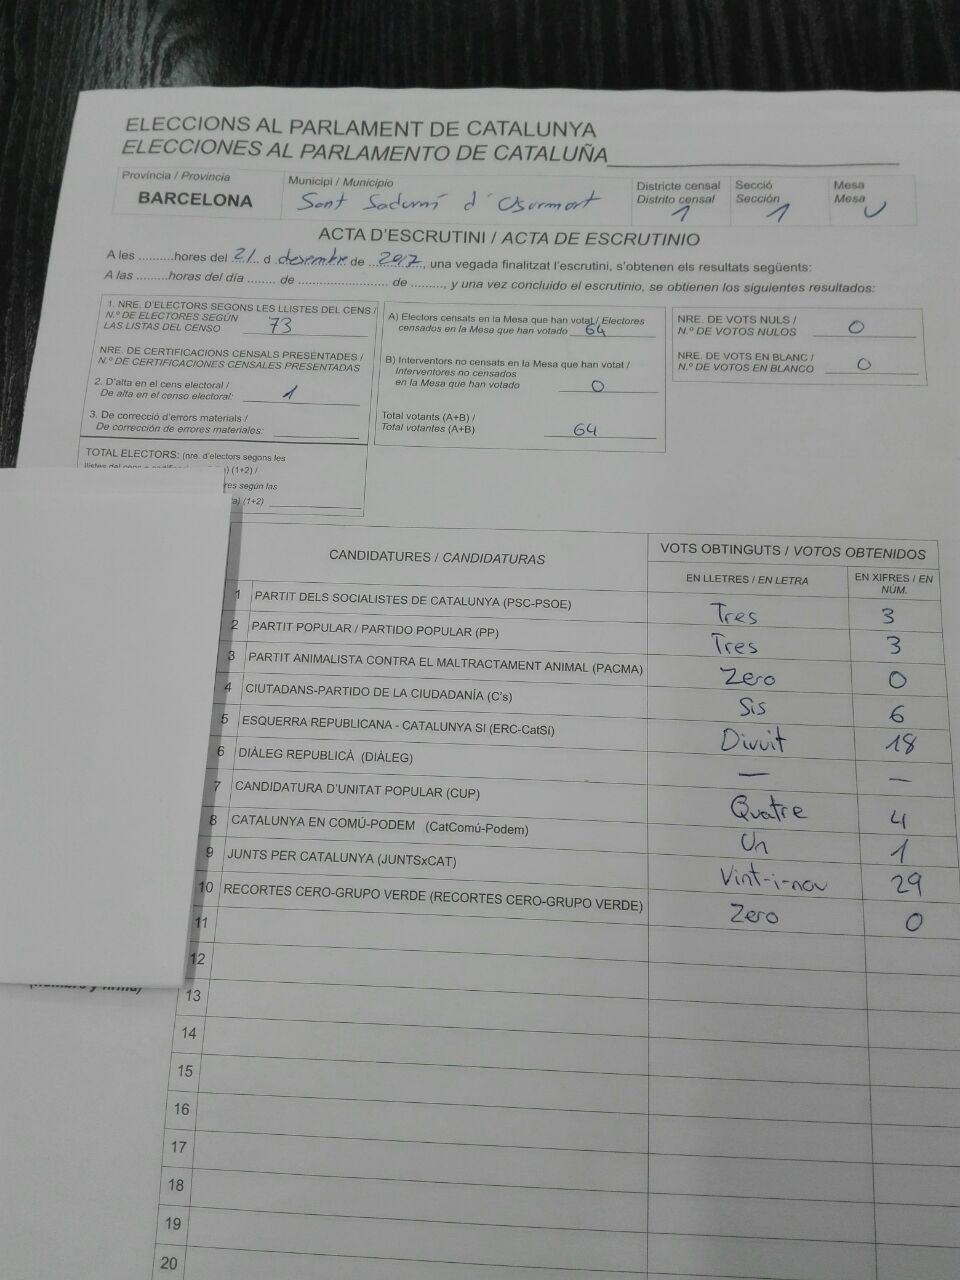 ELECCIONS AL PARLAMENT DE CATALUNYA
ELECCIONES AL PARLAMENTO DE CATALUÑA
Província / Provincia
BARCELONA
Municipi / Municipio
Sant Sadurní d'Osormort
Districte censal
Distrito censal 1
Secció
Sección 1
Mesa
Mesa U
ACTA D'ESCRUTINI / ACTA DE ESCRUTINIO
A les .........hores del 21 d desembre de 2017, una vegada finalitzat l'escrutini, s'obtenen els resultats següents:
A las .........horas del día ........ de ......................... de ........., y una vez concluido el escrutinio, se obtienen los siguientes resultados:
1. NRE. D'ELECTORS SEGONS LES LLISTES DEL CENS /
N.º DE ELECTORES SEGÚN
LAS LISTAS DEL CENSO 73
NRE. DE CERTIFICACIONS CENSALS PRESENTADES /
N.º DE CERTIFICACIONES CENSALES PRESENTADAS
2. D'alta en el cens electoral /
De alta en el censo electoral: 1
3. De correcció d'errors materials /
De corrección de errores materiales:
TOTAL ELECTORS: (nre. d'electors segons les
(1+2) /
según las
(1+2)
A) Electors censats en la Mesa que han votat / Electores
censados en la Mesa que han votado 64
B) Interventors no censats en la Mesa que han votat /
Interventores no censados
en la Mesa que han votado 0
Total votants (A+B) /
Total votantes (A+B) 64
NRE. DE VOTS NULS /
N.º DE VOTOS NULOS 0
NRE. DE VOTS EN BLANC /
N.º DE VOTOS EN BLANCO 0
CANDIDATURES / CANDIDATURAS
VOTS OBTINGUTS / VOTOS OBTENIDOS
EN LLETRES / EN LETRA
EN XIFRES / EN NÚM.
1 PARTIT DELS SOCIALISTES DE CATALUNYA (PSC-PSOE) Tres 3
2 PARTIT POPULAR / PARTIDO POPULAR (PP) Tres 3
3 PARTIT ANIMALISTA CONTRA EL MALTRACTAMENT ANIMAL (PACMA) Zero 0
4 CIUTADANS-PARTIDO DE LA CIUDADANÍA (C's) Sis 6
5 ESQUERRA REPUBLICANA - CATALUNYA SI (ERC-CatSí) Divuit 18
6 DIÀLEG REPUBLICÀ (DIÀLEG) — —
7 CANDIDATURA D'UNITAT POPULAR (CUP) Quatre 4
8 CATALUNYA EN COMÚ-PODEM (CatComú-Podem) Un 1
9 JUNTS PER CATALUNYA (JUNTSxCAT) Vint-i-nou 29
10 RECORTES CERO-GRUPO VERDE (RECORTES CERO-GRUPO VERDE) Zero 0
11
12
13
14
15
16
17
18
19
20